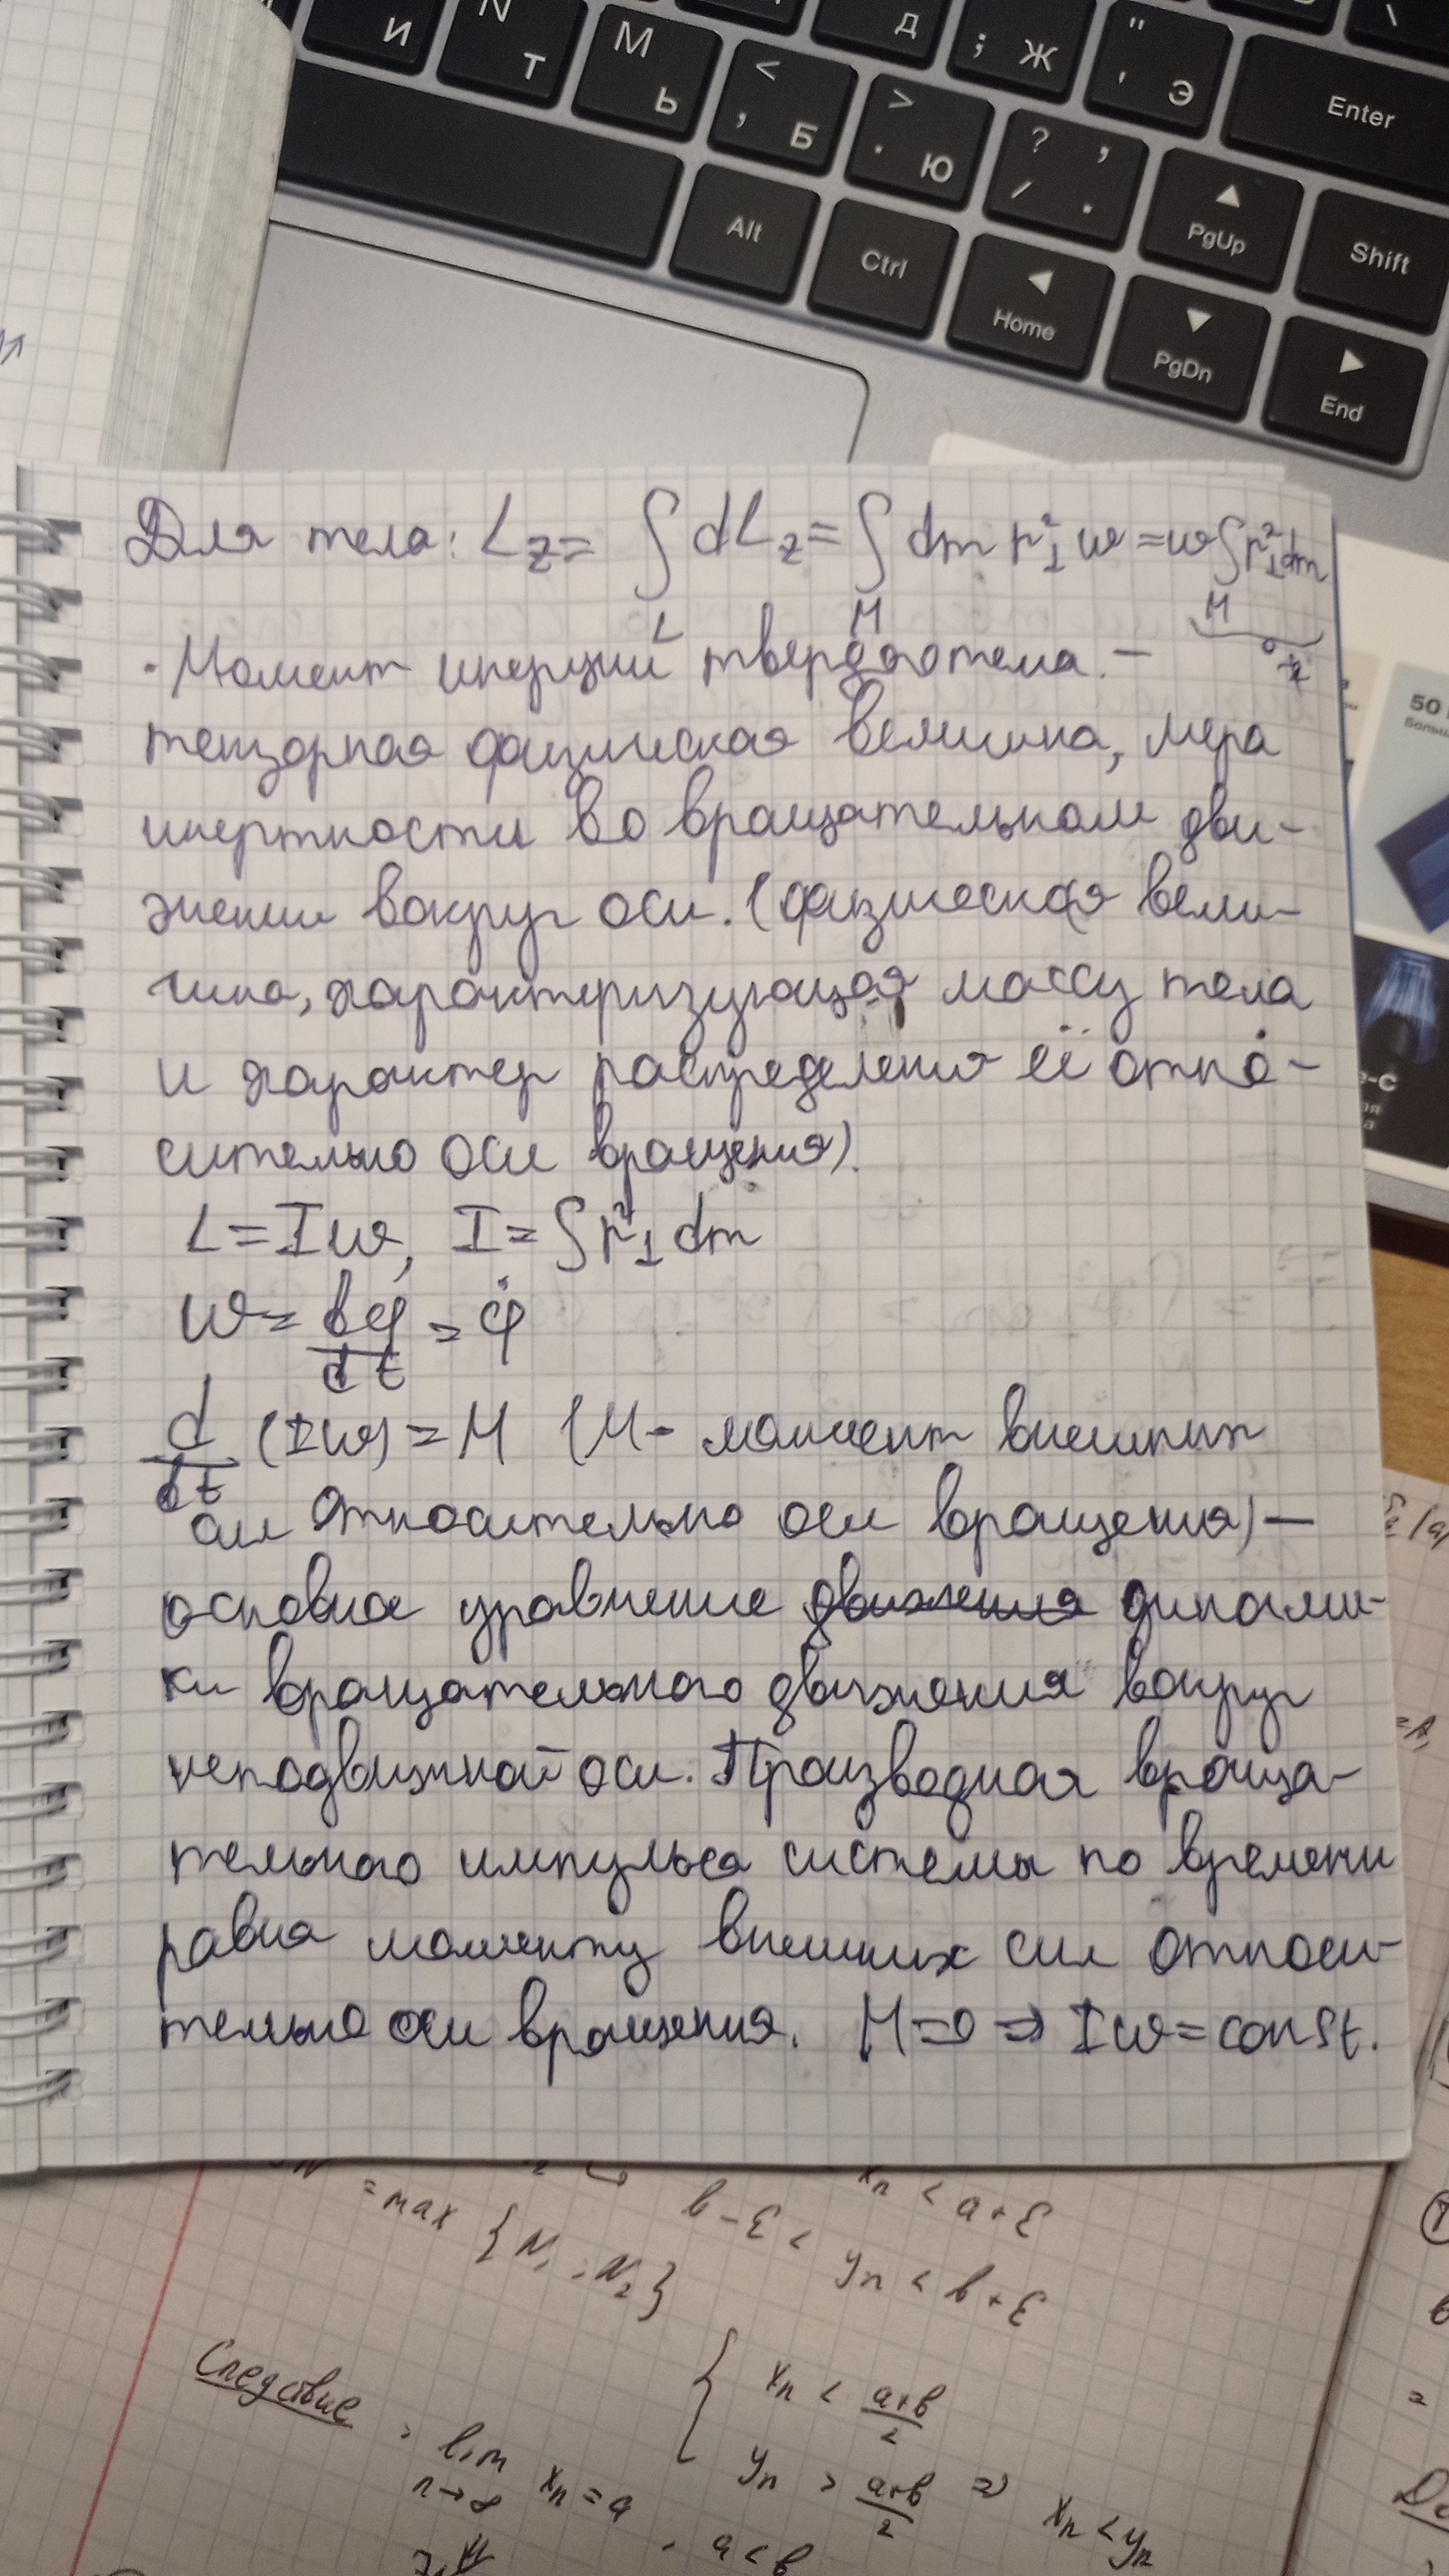 И
N Т
М Ь
< , Б
> . Ю
Д
; Ж
" ' Э
Enter
? , / .
Alt
Ctrl
PgUp
Shift
Home
PgDn
End
Для тела: L_z = ∫_L dL_z = ∫_M dm r_⊥^2 ω = ω ∫_M r_⊥^2 dm
· Момент инерции твердого тела. –
тензорная физическая величина, мера
инертности во вращательном дви-
жении вокруг оси. (физическая вели-
чина, характеризующая массу тела
и характер распределения её отно-
сительно оси вращения).
L = Iω, I = ∫ r_⊥^2 dm
ω = dφ/dt = φ̇
d/dt (Iω) = M (M - момент внешних
сил относительно оси вращения) –
основное уравнение движения динами-
ки вращательного движения вокруг
неподвижной оси. Производная враща-
тельного импульса системы по времени
равна моменту внешних сил относи-
тельно оси вращения. M=0 ⇒ Iω = const.
50
= max {N₁; N₂}
b-ε <
xₙ < a+ε
yₙ < b+ε
Следствие
lim xₙ = a
n→∞
, a < b
{ xₙ < (a+b)/2
yₙ > (a+b)/2 ⇒ xₙ < yₙ